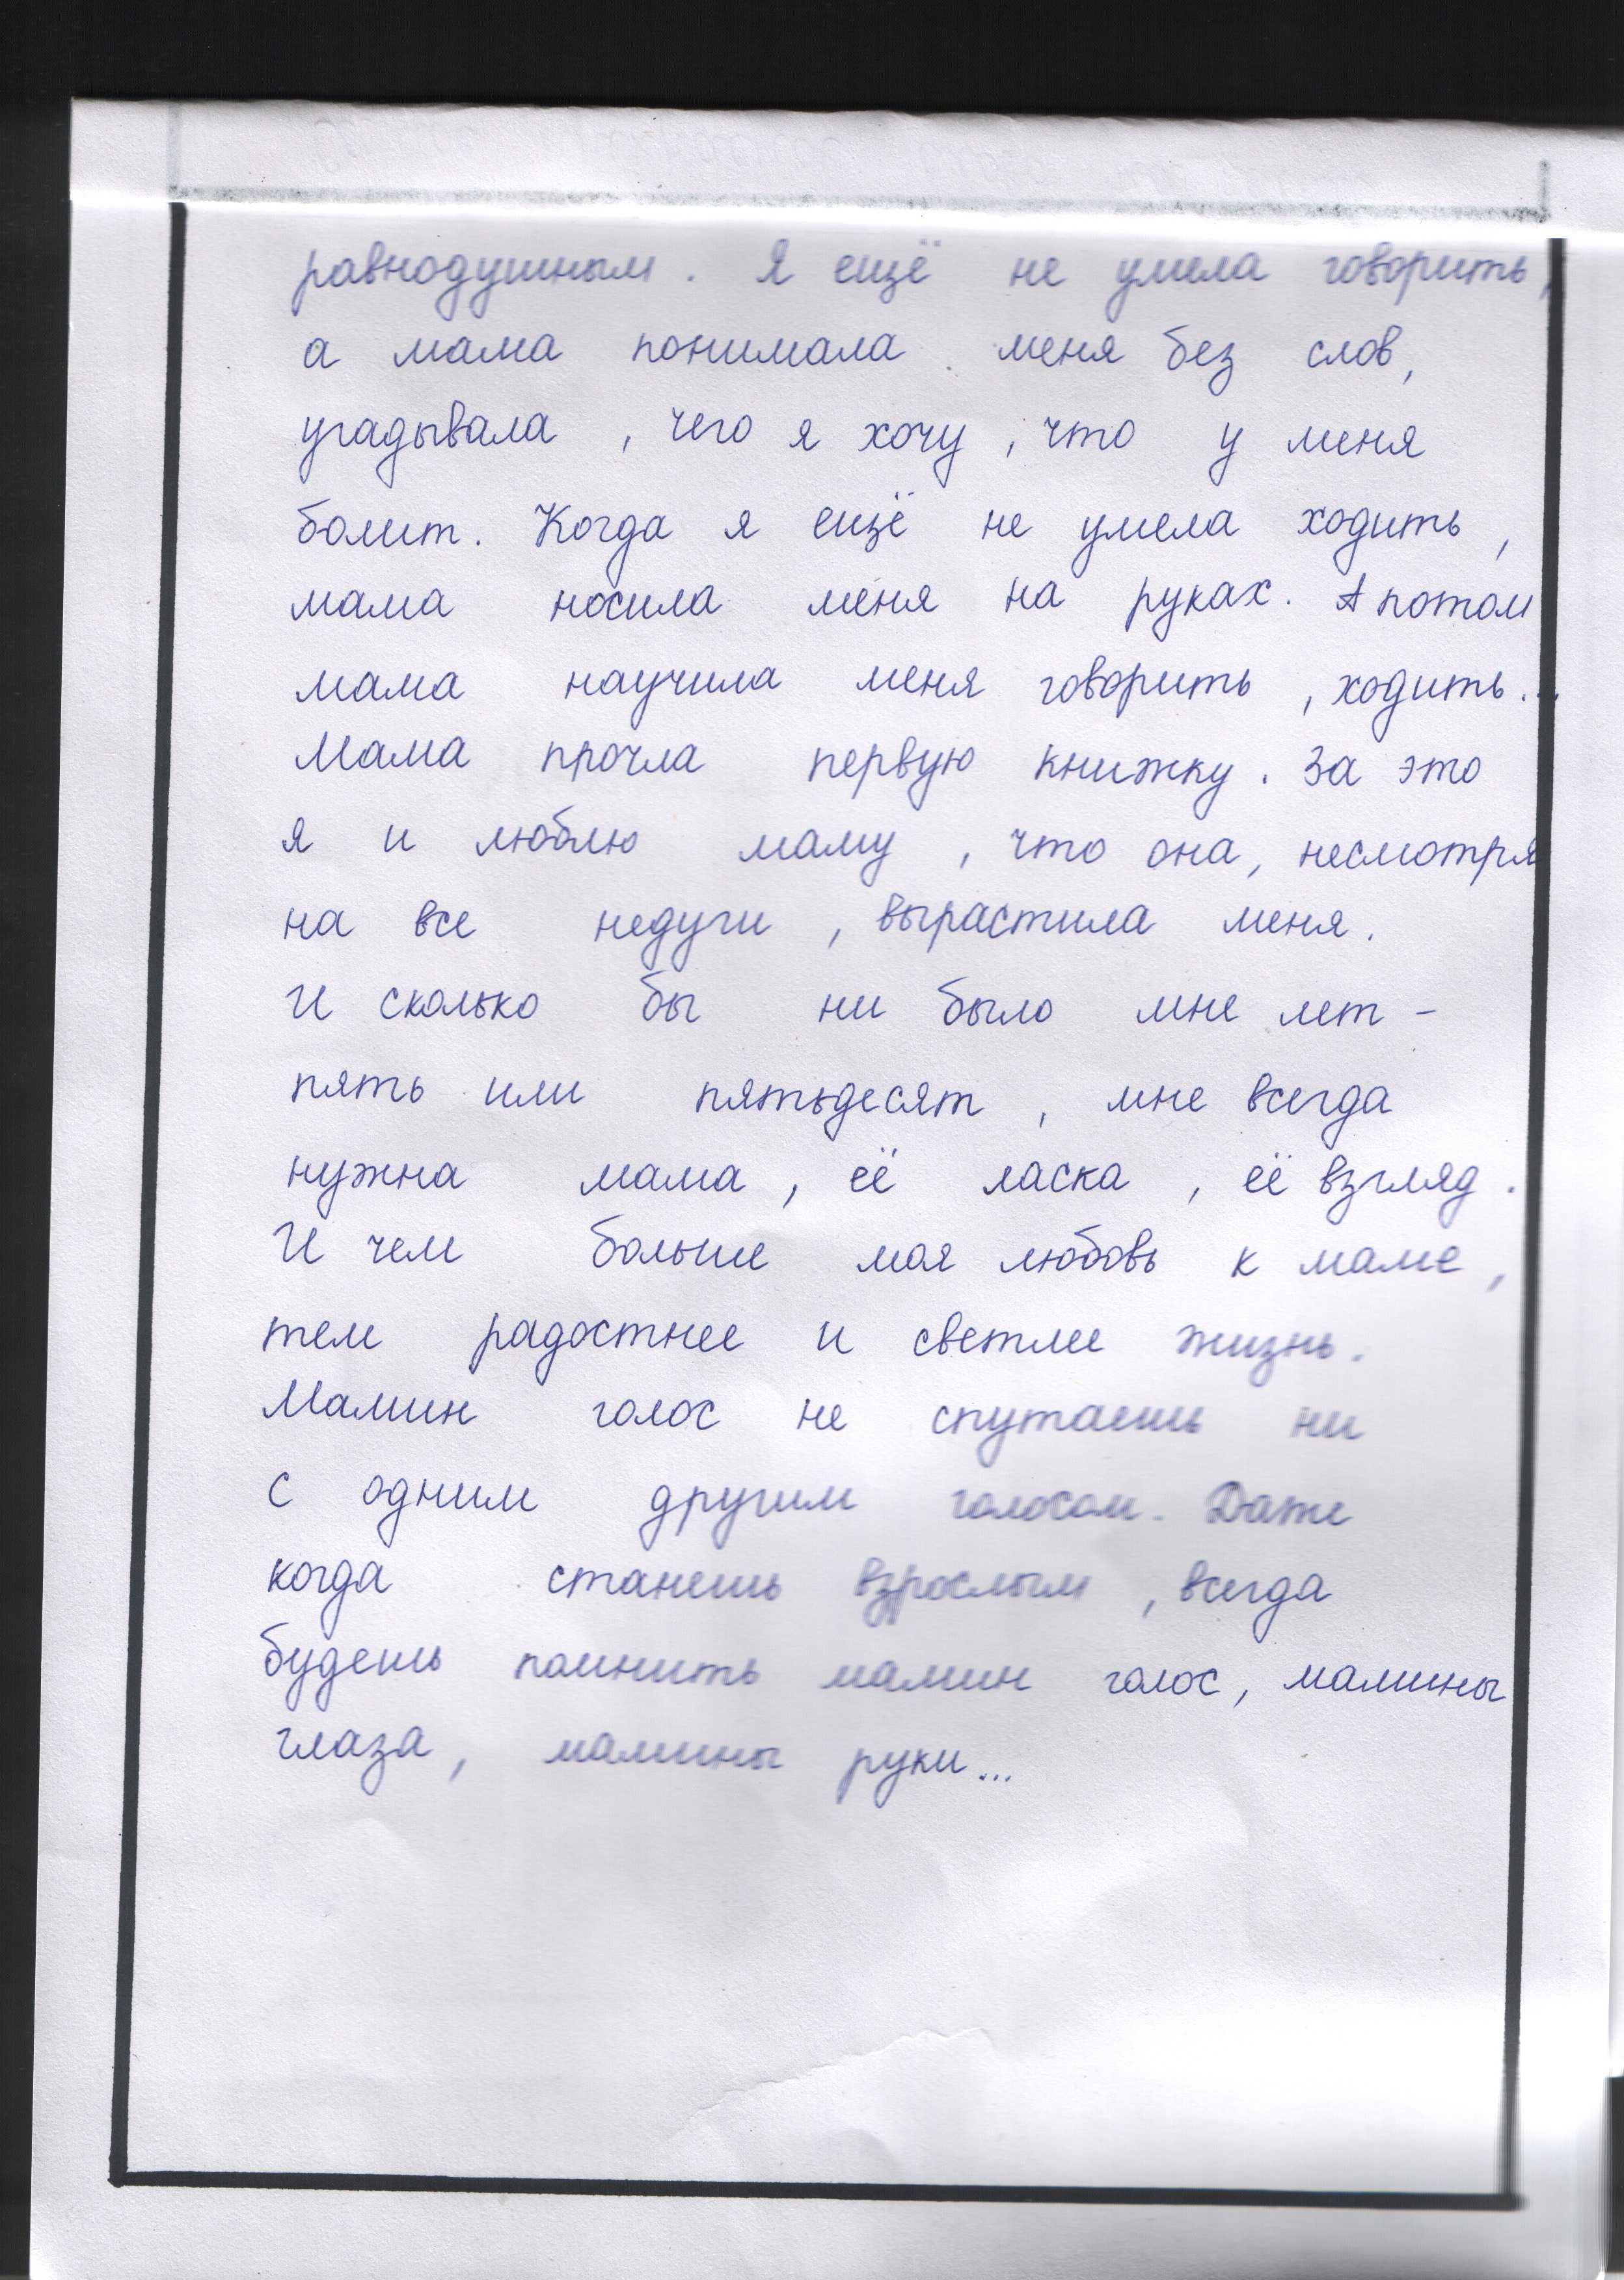 равнодушным. Я ещё не умела говорить,
а мама понимала меня без слов,
угадывала, чего я хочу, что у меня
болит. Когда я ещё не умела ходить,
мама носила меня на руках. А потом
мама научила меня говорить, ходить...
Мама прочла первую книжку. За это
я и люблю маму, что она, несмотря
на все недуги, вырастила меня.
И сколько бы ни было мне лет -
пять или пятьдесят, мне всегда
нужна мама, её ласка, её взгляд.
И чем больше моя любовь к маме,
тем радостнее и светлее жизнь.
Мамин голос не спутаешь ни
с одним другим голосом. Даже
когда станешь взрослым, всегда
будешь помнить мамин голос, мамины
глаза, мамины руки...